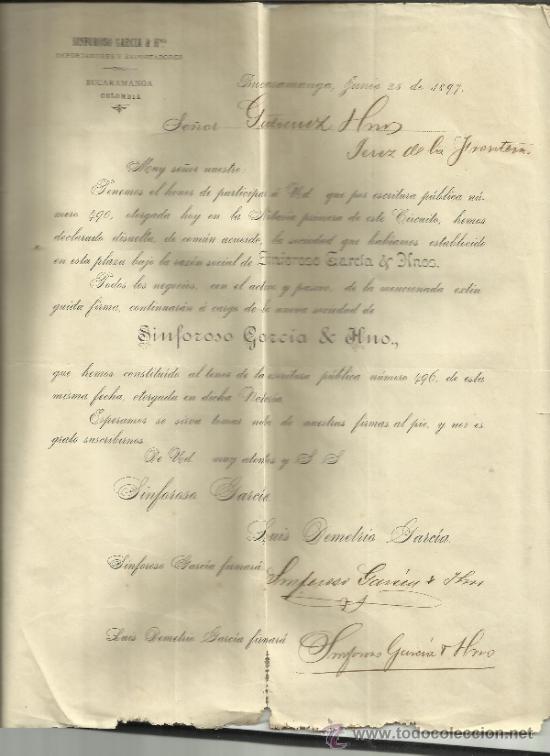 SINFOROSO GARCIA & Hnos
IMPORTADORES Y EXPORTADORES
BUCARAMANGA
COLOMBIA
Bucaramanga, Junio 25 de 1897.
Señor Gutierrez Hnos
Jerez de la Frontera
Muy señor nuestro:
Tenemos el honor de participar á Ud. que por escritura pública nú-
mero 490, otorgada hoy en la Notaría primera de este Circuito, hemos
declarado disuelta, de común acuerdo, la sociedad que habíamos establecido
en esta plaza bajo la razón social de Sinforoso García & Hnos.
Todos los negocios, con el activo y pasivo, de la mencionada extin
guida firma, continuarán á cargo de la nueva sociedad de
Sinforoso García & Hno.,
que hemos constituído al tenor de la escritura pública número 496, de esta
misma fecha, otorgada en dicha Notaría.
Esperamos se sirva tomar nota de nuestras firmas al pie, y nos es
grato suscribirnos
De Ud. muy atentos y S. S.
Sinforoso García.
Luis Demetrio García.
Sinforoso García firmará Sinforoso García & Hno
Luis Demetrio García firmará Sinforoso García & Hno
todocoleccion.net